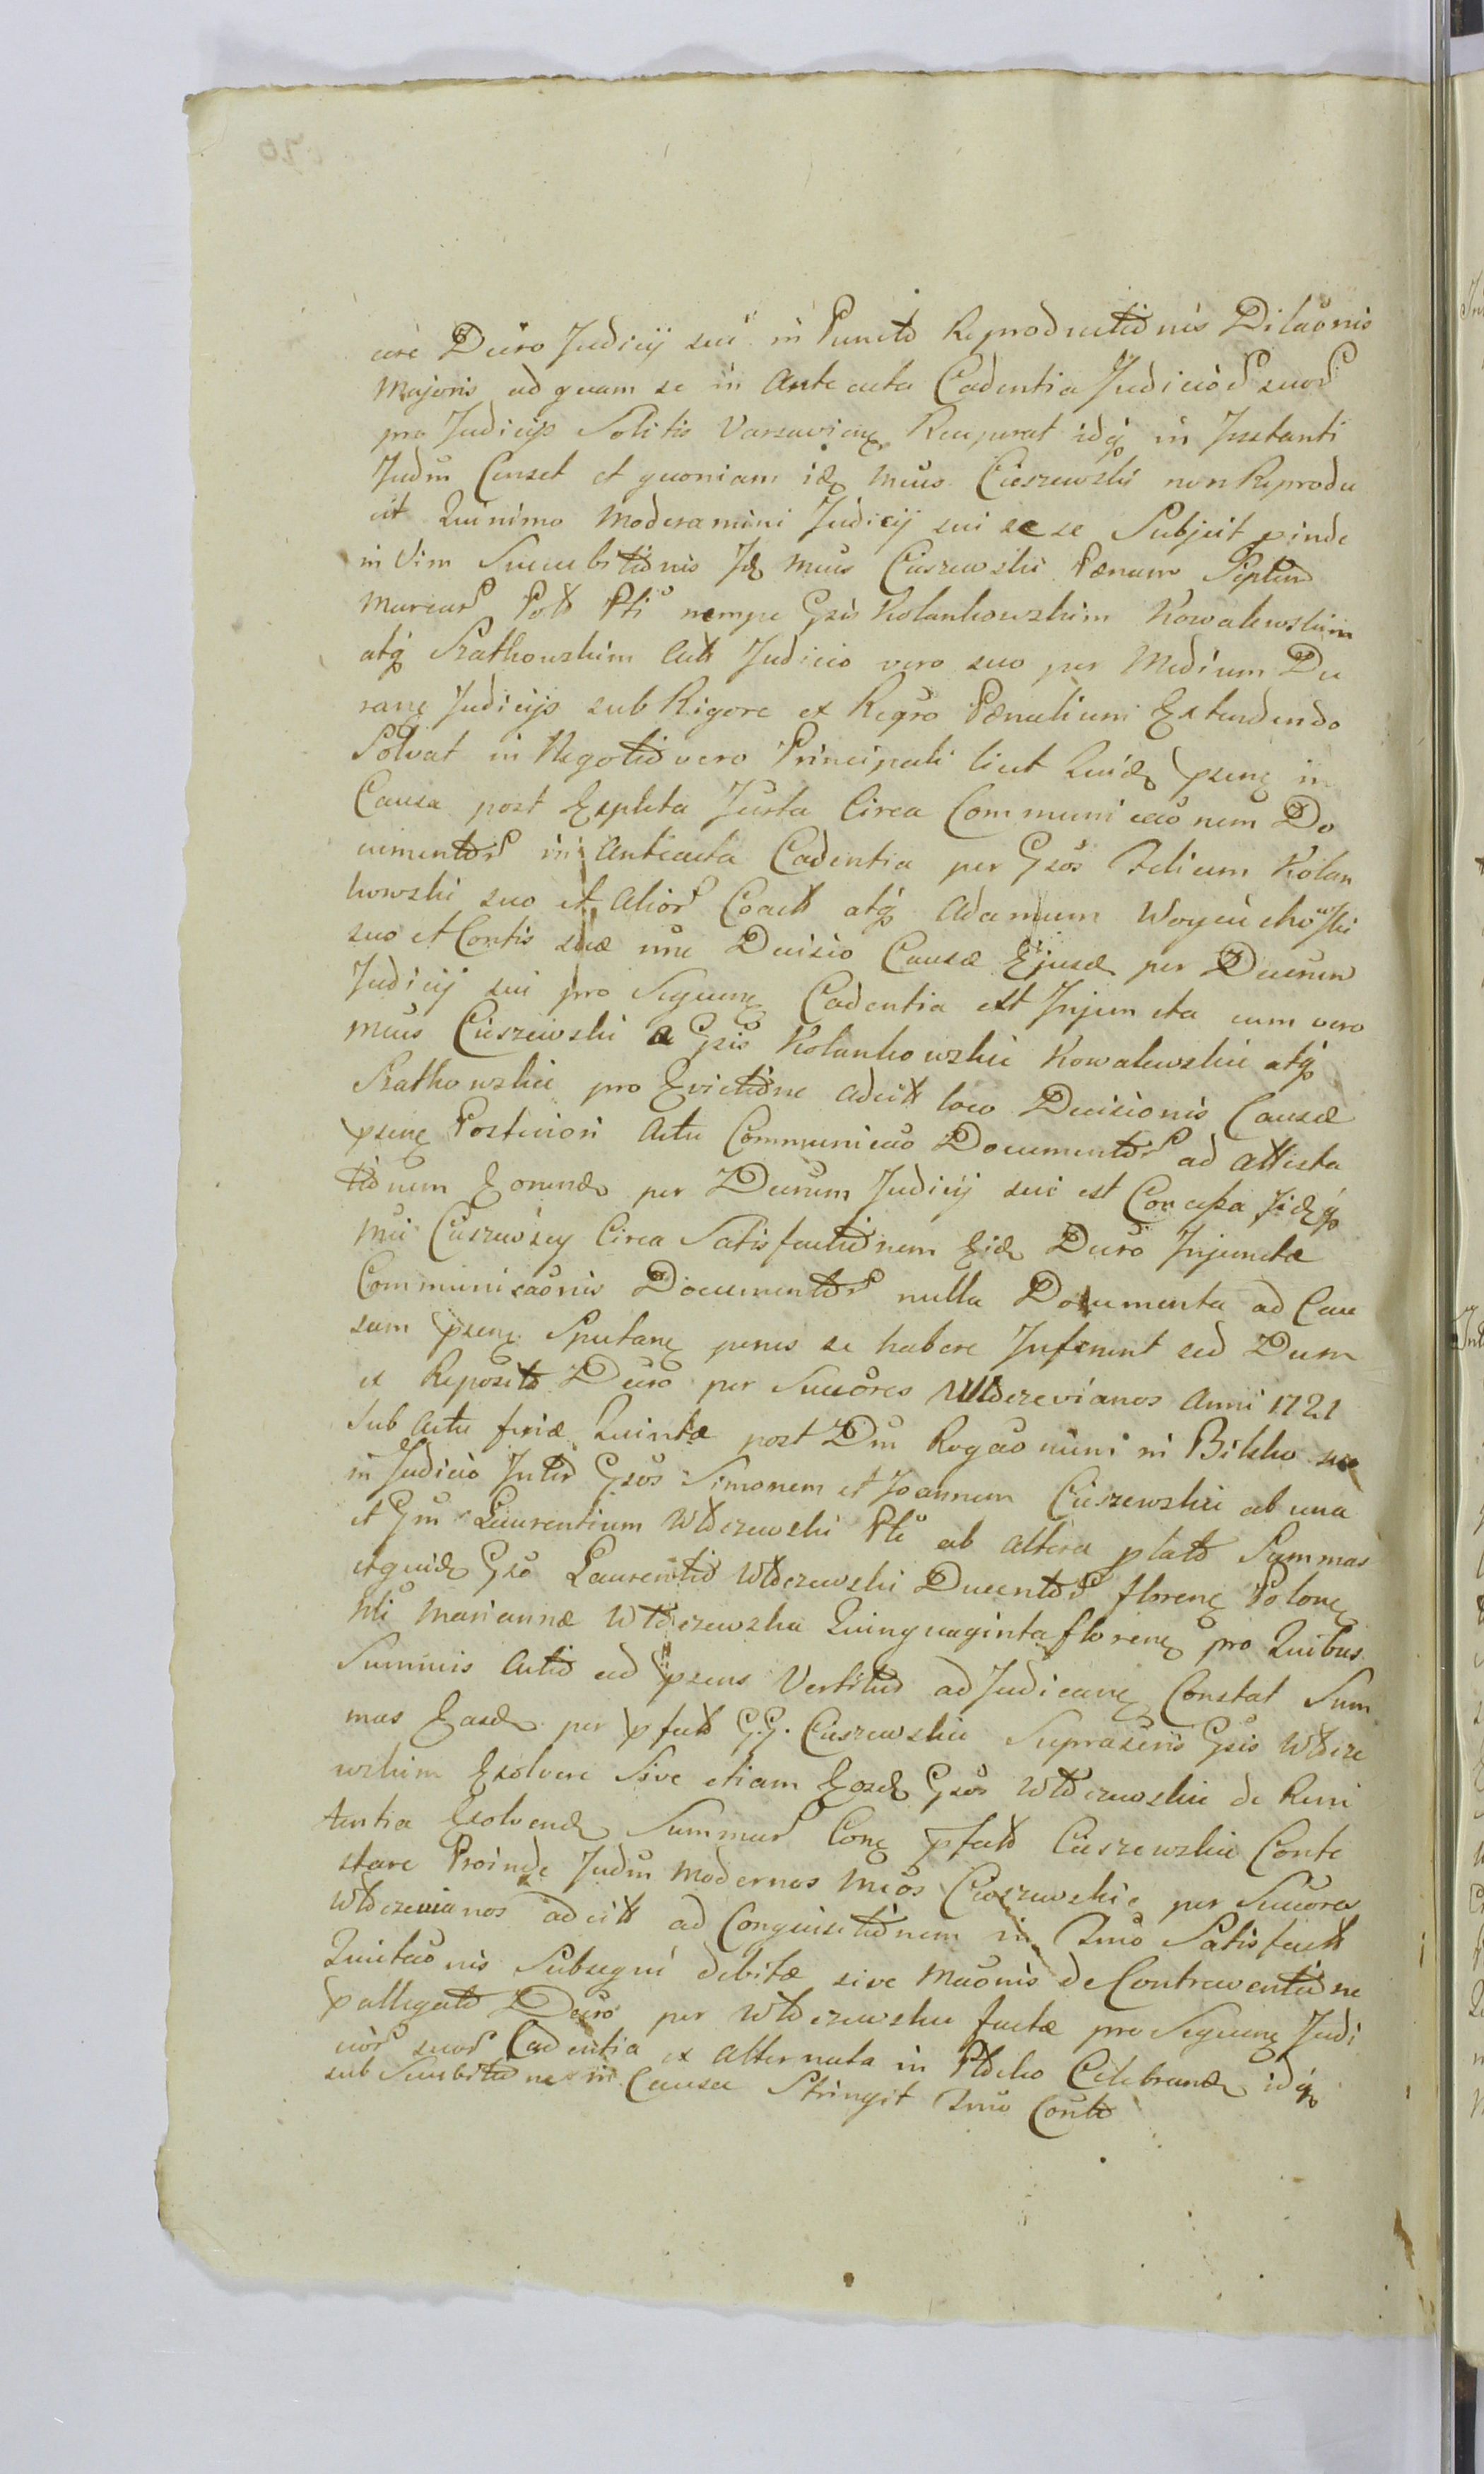 care Decro Judicij sui in Puncto Reproductionis Dilaonis
Majoris ad quam se in Anteacta Cadentia Judicior suor
pro Judicijs Solitis Varsavien Recuperat idq in Instanti
Judm Censet et quoniam id Mcus Cieszewski non Reprodu
cit Quinimo Moderamini Judicij sui se se Subjecit pinde
in Vim Succubitionis Id Mcus Cieszewski Pænam Septem
Marcar Pote Pti nempe Gsis Kolankowskim Kowalewskim
atq Rathowskim Actt Judicio vero suo per Medium Du
rans Judicijs sub Rigore ex Regro Pænalium Extendendo
Solvat in Negotio vero Principali licet Quid psens in
Causa post Expleta Justa Circa Communicaonem Do
cumentor in Anteacta Cadentia per Gsos Felicem Kolan
kowski suo et Alior Coactt atq Adamum Woyciechowski
suo et Contis suæ nne Decisio Causæ Ejusd per Decrum
Judicij sui pro Sequen Cadentia est Injuncta cum vero
Mcus Cieszewski a Gsis Kolankowskie Kowalewskie atq
Rathowskie pro Evictione adcitt loco Decisionis Causæ
psens Posteriori Actu Communicao Documentor ad attesta
tionem Eorund per Decrum Judicij sui est Concessa Iidq
Mci Cieszewscy Circa Satisfactionem Eid Decro Injunctæ
Communicaonis Documentor nulla Documenta ad Cau
sam psen Spectan penes se habere Inferunt sed Dum
ex Reposito Decro per Succores Wtoczevianos Anni 1721
sub Actu feriæ Quintæ post Dm Rogaonum in Bilsko suo
in Judicio Inter Gsos Simonem et Joannem Cieszewskie ab una
et Gm Laurentium Wtoczewski Pti ab altera plato Summas
et quid Gso Laurentio Wtoczewski Ducentor floren Polon
Nli Mariannæ Wtoczewska Quinquaginta floren pro Quibus
Summis Actio ad psens Vertitur adjudican Constat Sum
mas Easd per pfatt G.G. Cieszewskie Suprascris Gsis Wtocze
wskim Exolvere sive etiam Eosd Gsos Wtoczewskie de Reni
tentia Exolvend Summar Con pfatt Cieszewskie Conte
stare Proinde Judm Modernos Mcos Cieszewskie per Succores
Wtoczevianos adcitt ad Conquisitionem in Tmo Satisfactt
Quietaonis Subsequi debitæ sive Maonis de Contraventione
pallegato Decro per Wtoczewskie factæ pro Sequen Judi
cior suor Cadentia ex alternata in Ptocko Celebrand idq
sub Succubitione in Causa Stringit Tmo Conto